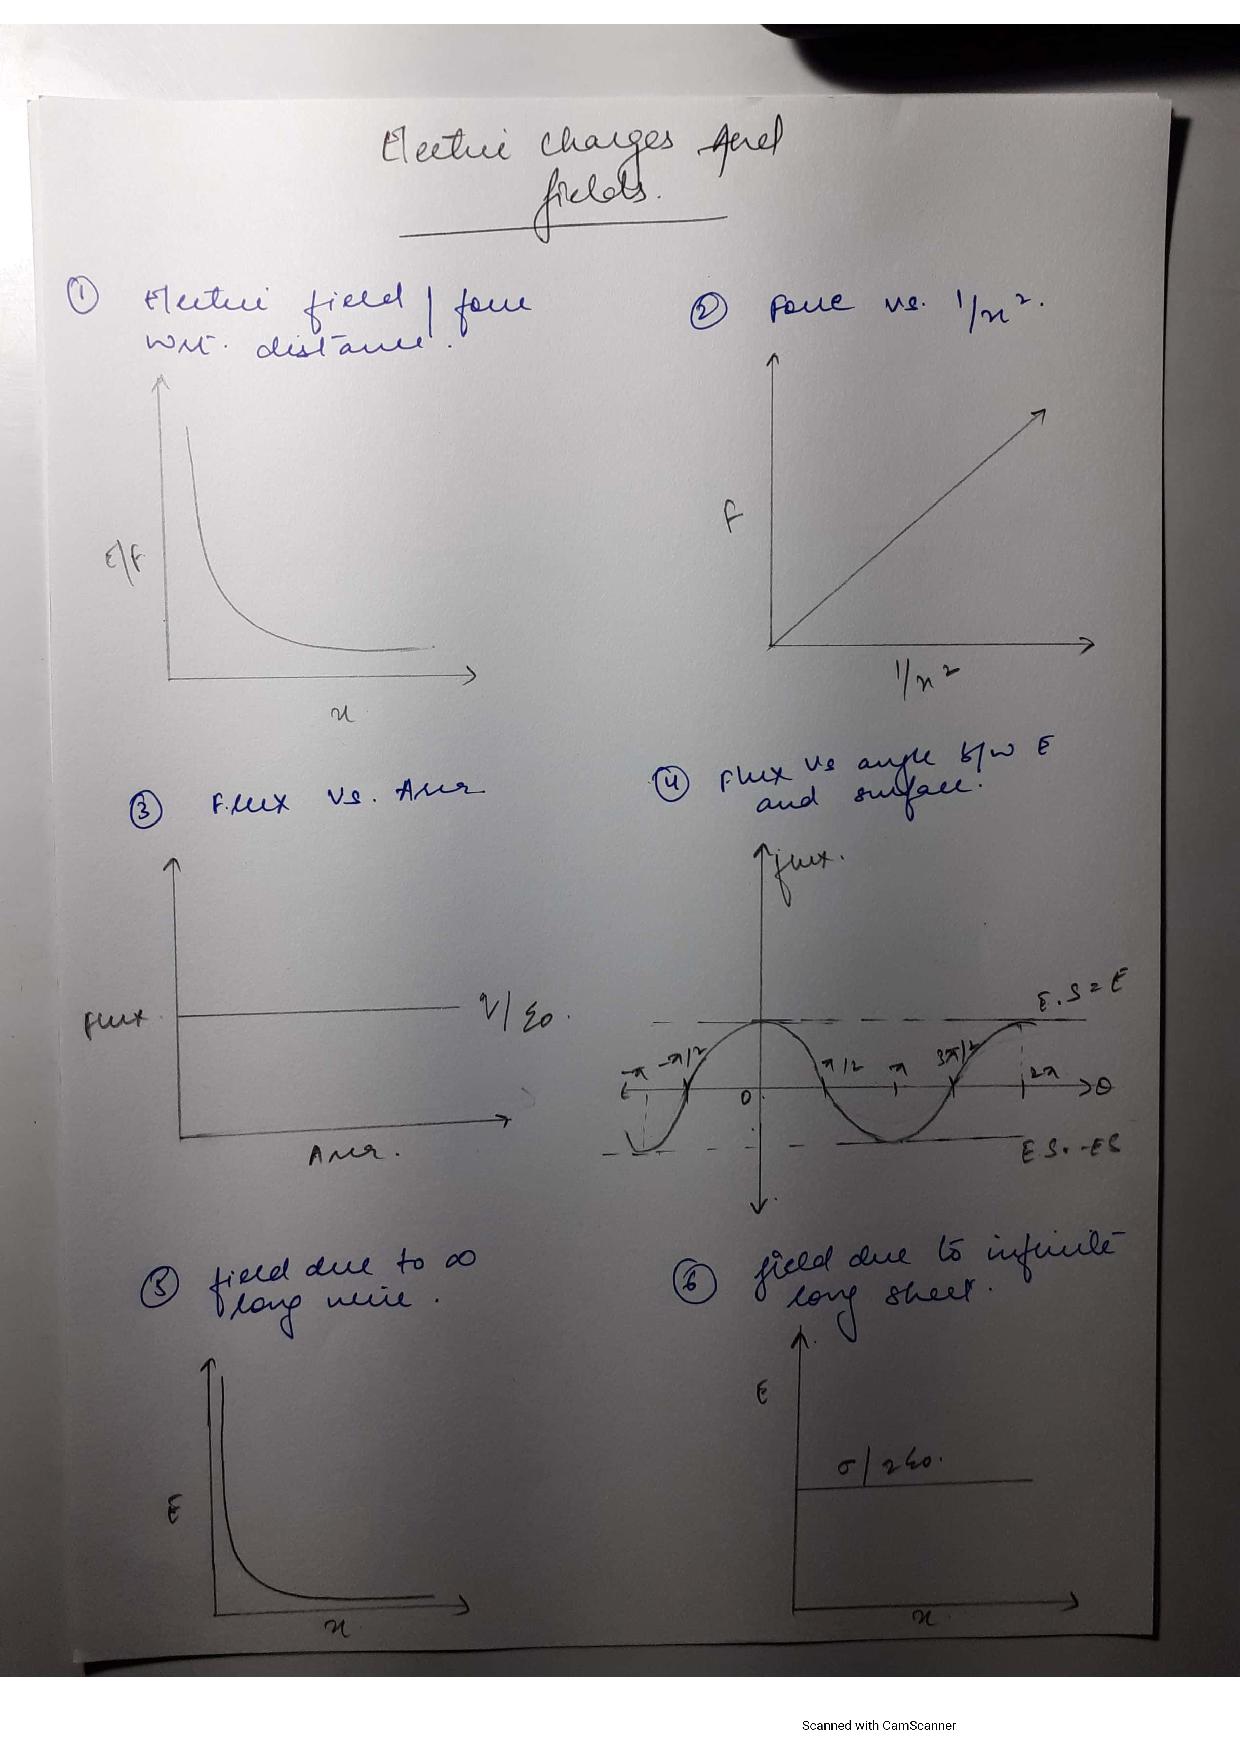 Electric charges And
fields.
① Electric field / force
wrt. distance.
E/F
x
② Force vs. 1/x².
F
1/x²
③ Flux vs. Area
Flux
q/ε0.
Area.
④ Flux vs angle b/w E
and surface.
flux.
E.S = E
-π -π/2 0 π/2 π 3π/2 2π θ
E S. -ES
⑤ field due to ∞
long wire.
E
x
⑥ field due to infinite
long sheet.
E
σ/2ε0.
x
Scanned with CamScanner